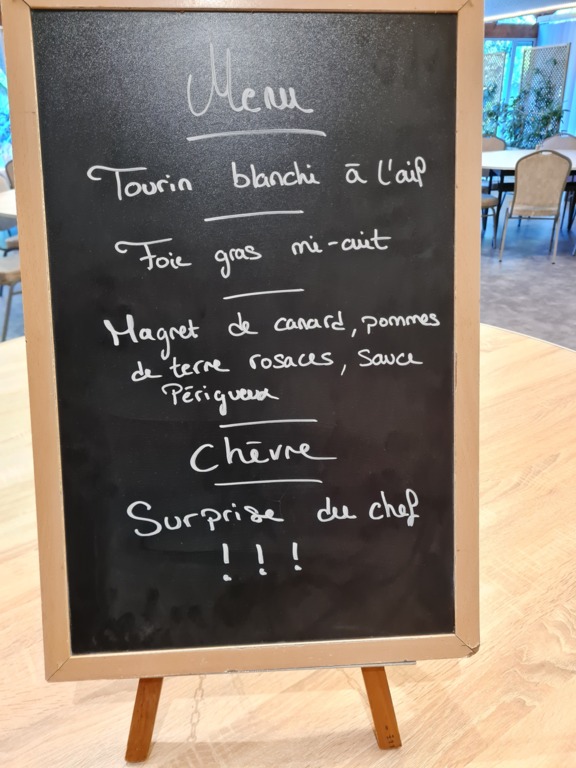 Menu
Tourin blanchi à l'ail
Foie gras mi-cuit
Magret de canard, pommes
de terre rosaces, sauce
Périgueux
Chèvre
Surprise du chef
! ! !